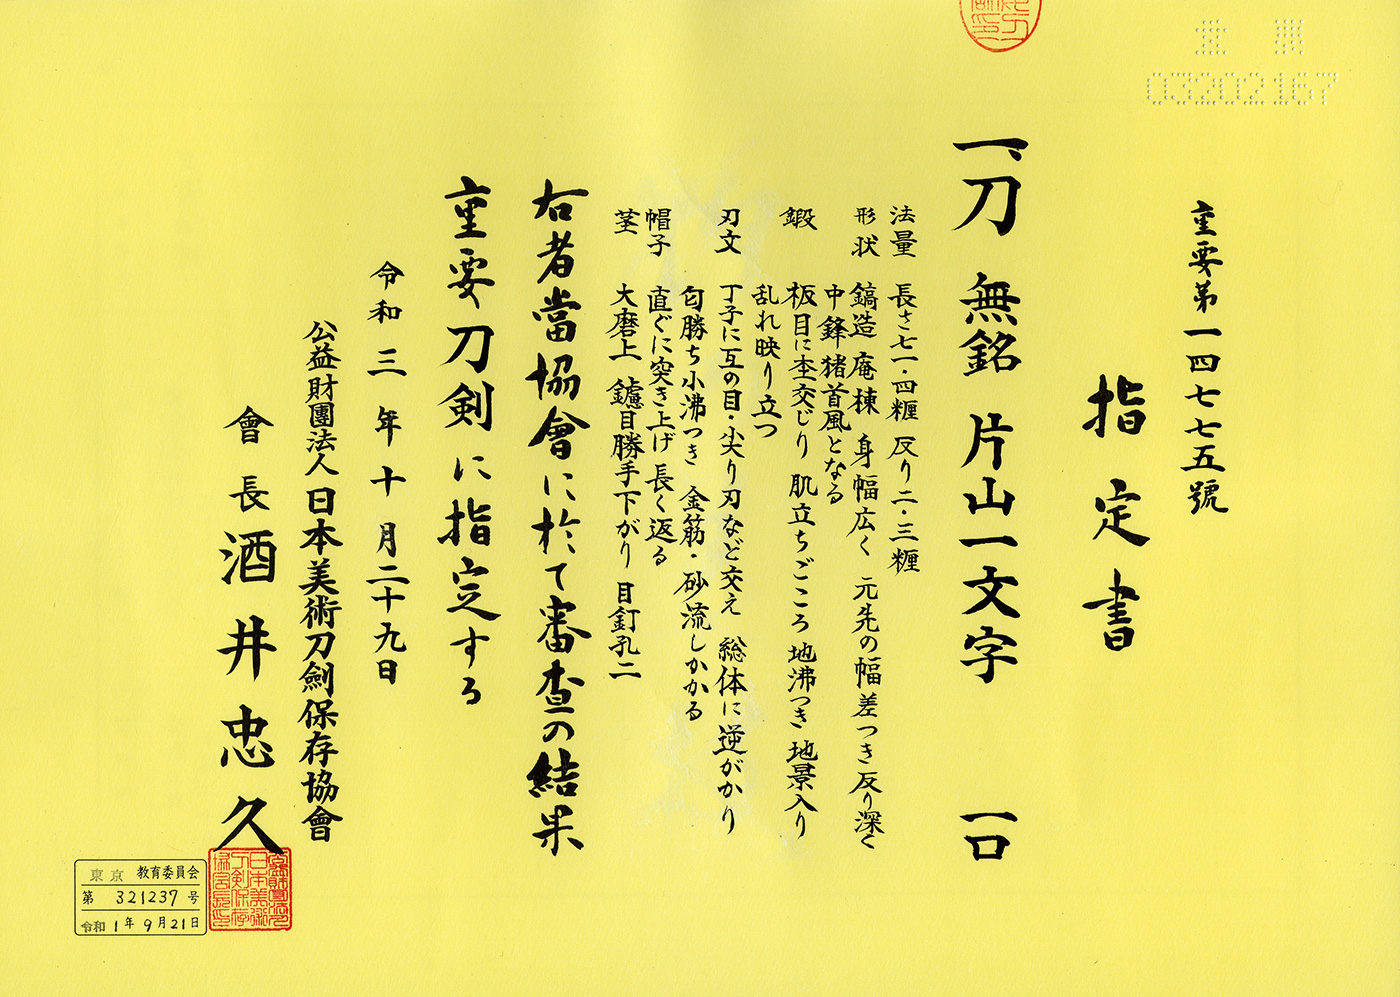 重要
03202167
重要第一四七七五號
指定書
一、刀 無銘 片山一文字 一口
法量 長さ七一・四糎 反り二・三糎
形状 鎬造 庵棟 身幅広く 元先の幅差つき 反り深く
中鋒猪首風となる
鍛 板目に杢交じり 肌立ちごころ 地沸つき 地景入り
乱れ映り立つ
刃文 丁子に互の目・尖り刃など交え 総体に逆がかり
匂勝ち小沸つき 金筋・砂流しかかる
帽子 直ぐに突き上げ長く返る
茎 大磨上 鑢目勝手下がり 目釘孔二
右者當協會に於て審査の結果
重要刀剣に指定する
令和三年十月二十九日
公益財團法人日本美術刀劍保存協會
會長 酒井忠久
東京 教育委員会
第 321237 号
令和 1年 9月21日